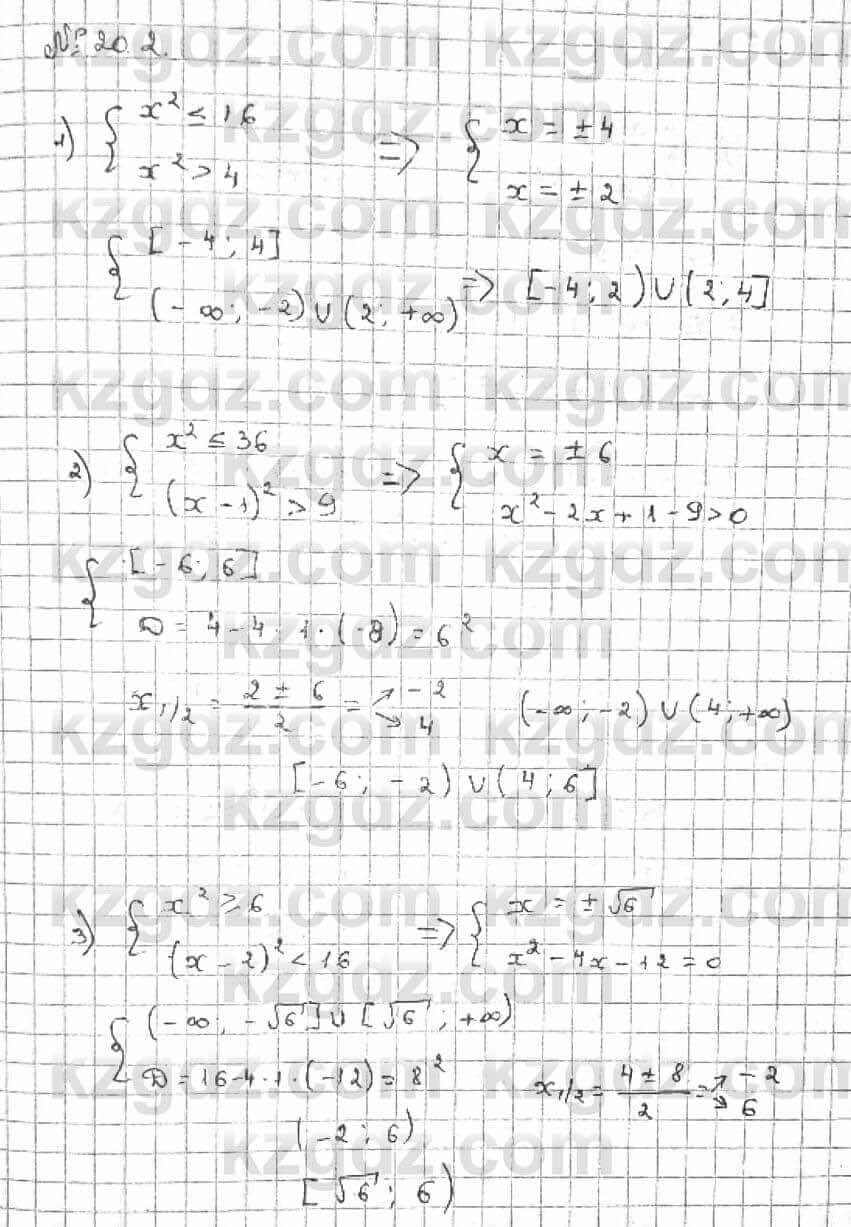 № 20.2.
1) { x² ≤ 16 => { x = ±4
x² > 4 x = ±2
{ [-4; 4]
(-∞; -2) ∪ (2; +∞) => [-4; 2) ∪ (2; 4]
2) { x² ≤ 36 => { x = ±6
(x - 1)² > 9 x² - 2x + 1 - 9 > 0
{ [-6; 6]
D = 4 - 4 · 1 · (-8) = 6²
x₁/₂ = (2 ± 6)/2 = ↗ -2 ↘ 4 (-∞; -2) ∪ (4; +∞)
[-6; -2) ∪ (4; 6]
3) { x² ≥ 6 => { x = ±√6
(x - 2)² < 16 x² - 4x - 12 = 0
{ (-∞; -√6] ∪ [√6; +∞)
D = 16 - 4 · 1 · (-12) = 8² x₁/₂ = (4 ± 8)/2 = ↗ -2 ↘ 6
(-2; 6)
[√6; 6)
kzgdz.com